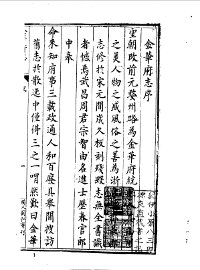 金華府志序
皇朝改前元婺州路為金華府統
之美人物之盛風俗之善為浙
志修於宋元間歲久板刻殘壞志無全書識
者憾焉武昌周君宗智由名進士歷春官郎
中
命來知府事三載政通人和百廢具舉間搜訪
舊志於散逸中僅得三之一喟然歎曰金華